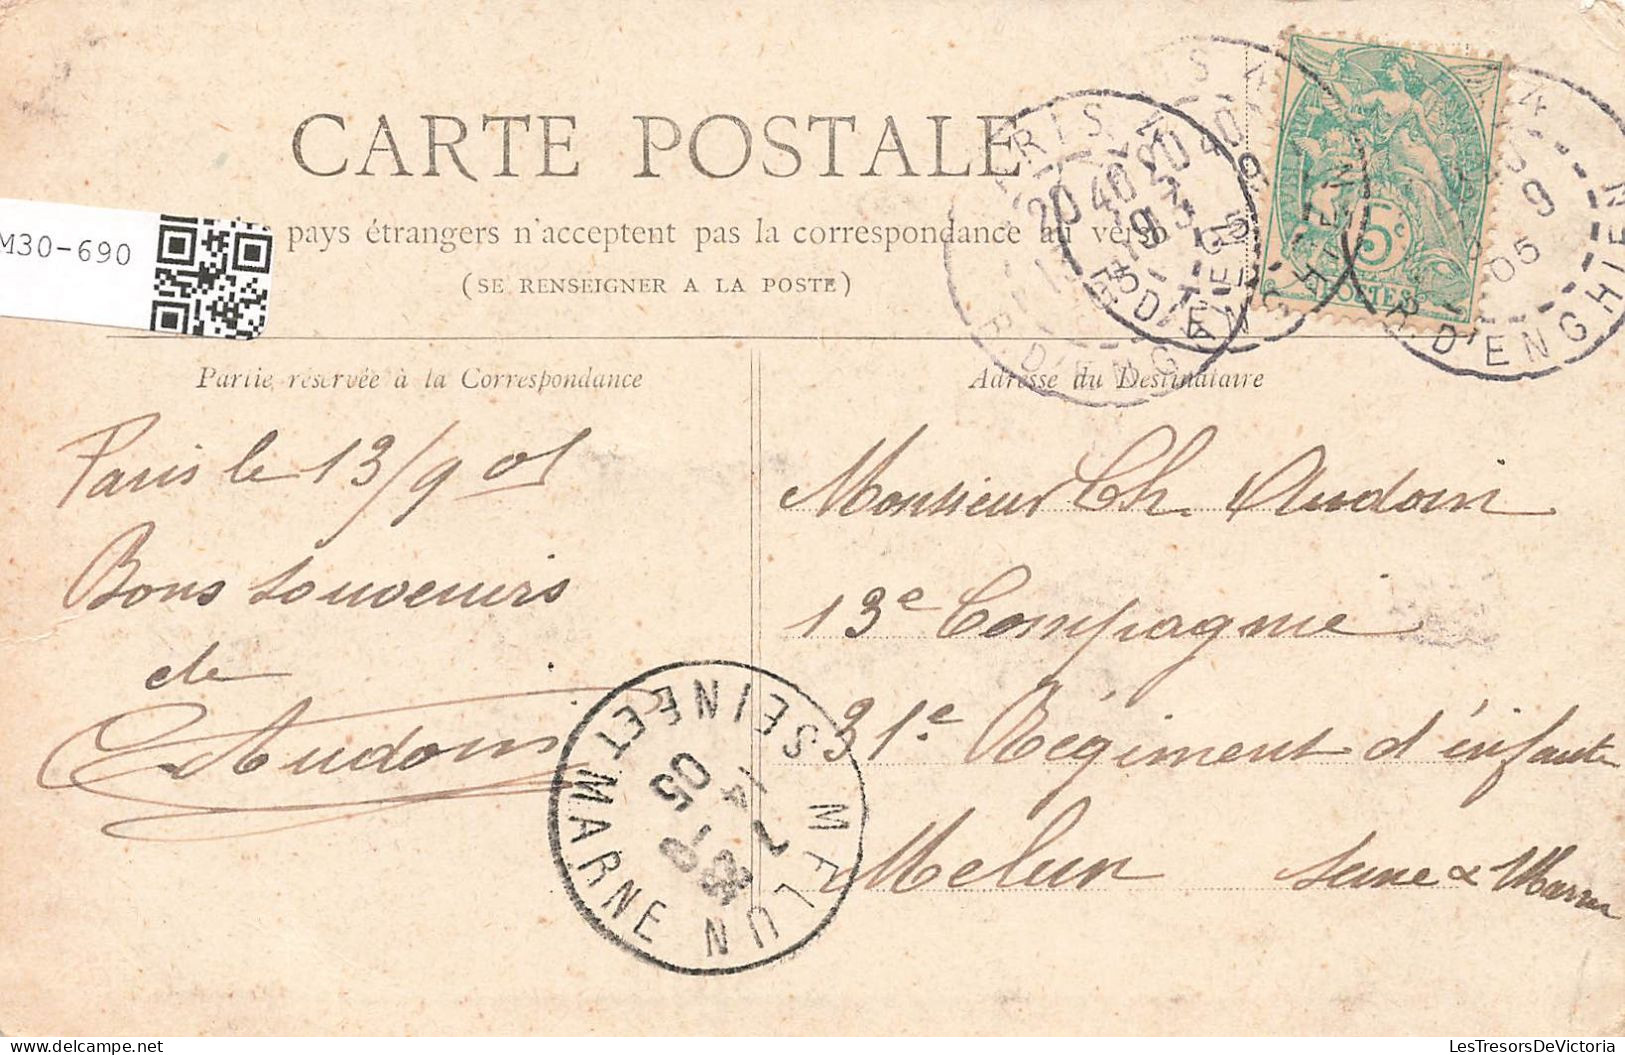 CARTE POSTALE
M30-690
pays étrangers n'acceptent pas la correspondance au verso
(SE RENSEIGNER A LA POSTE)
Partie réservée à la Correspondance
Adresse du Destinataire
Paris le 13/9 05
Bons souvenirs
de
Audoin
Monsieur Ch. Audoin
13e Compagnie
31e Régiment d'infanterie
Melun Seine & Marne
5c
POSTES
PARIS
R. D'ENGHIEN
20 40
13 9
05
MELUN
SEINE ET MARNE
14
05
LesTresorsDeVictoria
www.delcampe.net